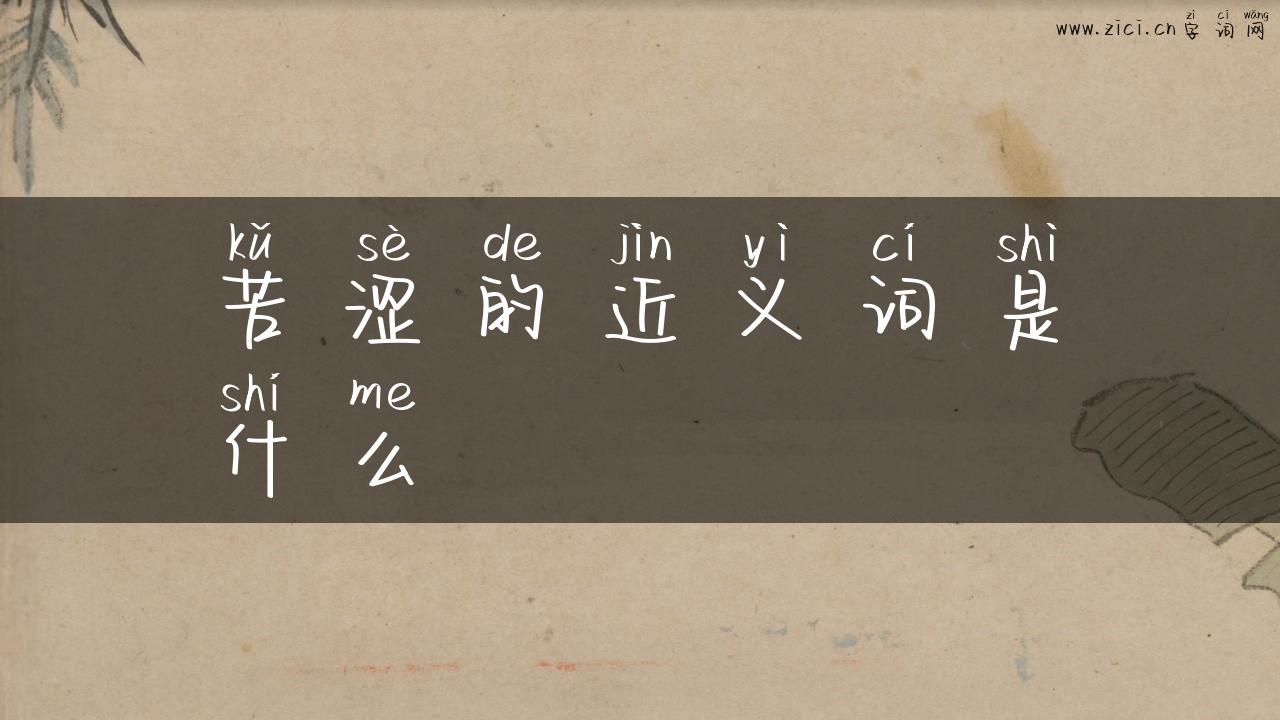 zì cí wǎng
www.zici.cn 字词网
kǔ sè de jìn yì cí shì
苦涩的近义词是
shí me
什么